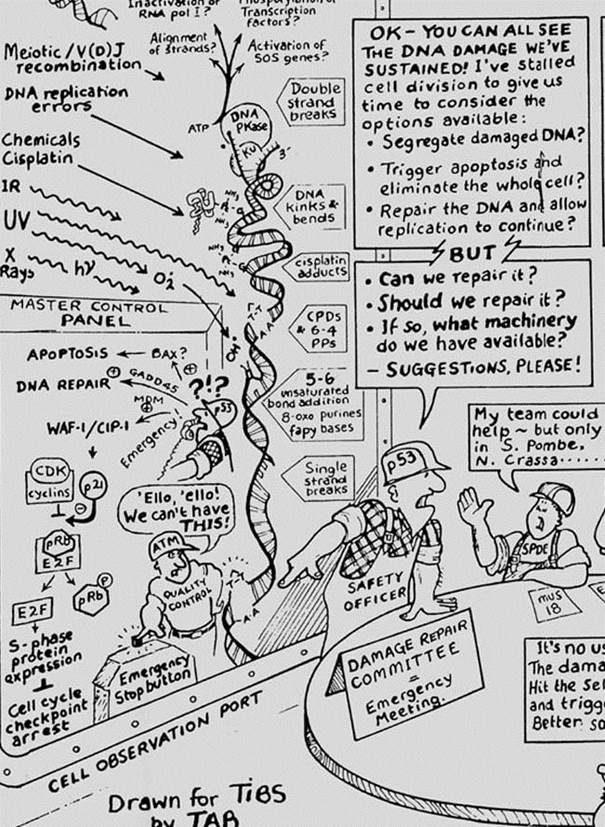 RNA pol I?
Transcription
factors?
Alignment
of strands?
Activation of
SOS genes?
Meiotic / V(D)J
recombination
DNA replication
errors
Chemicals
Cisplatin
IR
UV
X
Rays
hν
O₂⁻
ATP
DNA
PKase
KU
3'
NH₃
NH₃
NH₃
NH₃
Pt
A-A
OH·
Double
strand
breaks
DNA
kinks &
bends
cisplatin
adducts
CPDs
& 6-4
PPs
5-6
unsaturated
bond addition
8-oxo purines
fapy bases
Single
strand
breaks
MASTER CONTROL
PANEL
APOPTOSIS ← BAX?
DNA REPAIR
GADD45
MDM
WAF-1/CIP-1
Emergency
?!?
p53
CDK
cyclins
p21
pRb
E2F
E2F
pRb
P
S-phase
protein
expression
Cell cycle
checkpoint
arrest
'Ello, 'ello!
We can't have
THIS!
ATM
QUALITY
CONTROL
Emergency
Stop button
CELL OBSERVATION PORT
OK - YOU CAN ALL SEE
THE DNA DAMAGE WE'VE
SUSTAINED! I've stalled
cell division to give us
time to consider the
options available:
• Segregate damaged DNA?
• Trigger apoptosis and
eliminate the whole cell?
• Repair the DNA and allow
replication to continue?
BUT
• Can we repair it?
• Should we repair it?
• If so, what machinery
do we have available?
- SUGGESTIONS, PLEASE!
My team could
help ~ but only
in S. Pombe,
N. Crassa......
p53
SAFETY
OFFICER
SPDE
mus
18
DAMAGE REPAIR
COMMITTEE
=
Emergency
Meeting.
It's no us
The dama
Hit the Sel
and trigg
Better so
Drawn for TiBS
by TAB